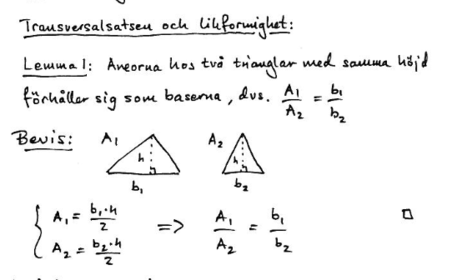 Transversalsatsen och likformighet:
Lemma 1: Areorna hos två trianglar med samma höjd
förhåller sig som baserna, dvs. A₁/A₂ = b₁/b₂
Bevis: A₁ h b₁ A₂ h b₂
{ A₁ = b₁·h/2 => A₁/A₂ = b₁/b₂ □
A₂ = b₂·h/2